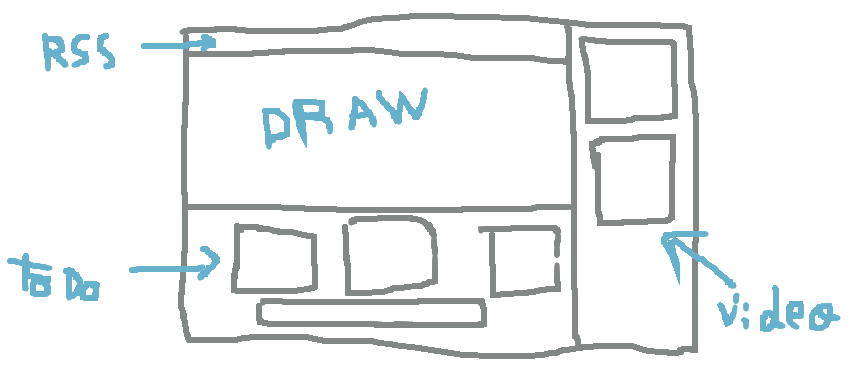 RSS
DRAW
To Do
Video